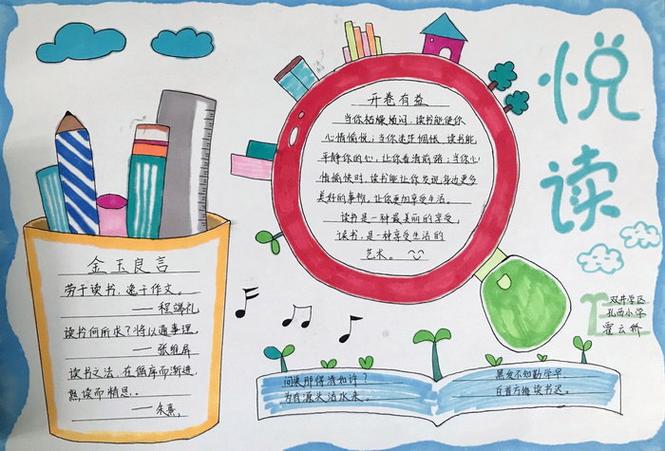 悦读
开卷有益
当你枯燥烦闷,读书能使你
心情愉悦;当你迷茫惆怅,读书能
平静你的心,让你看清前路;当你心
情愉快时,读书能让你发现身边更多
美好的事物,让你更加享受生活。
读书是一种最美丽的享受,
读书,是一种享受生活的
艺术。
金玉良言
劳于读书,逸于作文。
——程端礼
读书何所求?将以通事理。
——张维屏
读书之法,在循序而渐进,
熟读而精思。
——朱熹
问渠那得清如许?
为有源头活水来。
黑发不知勤学早,
白首方悔读书迟。
双井学区
扎西小学
霍云